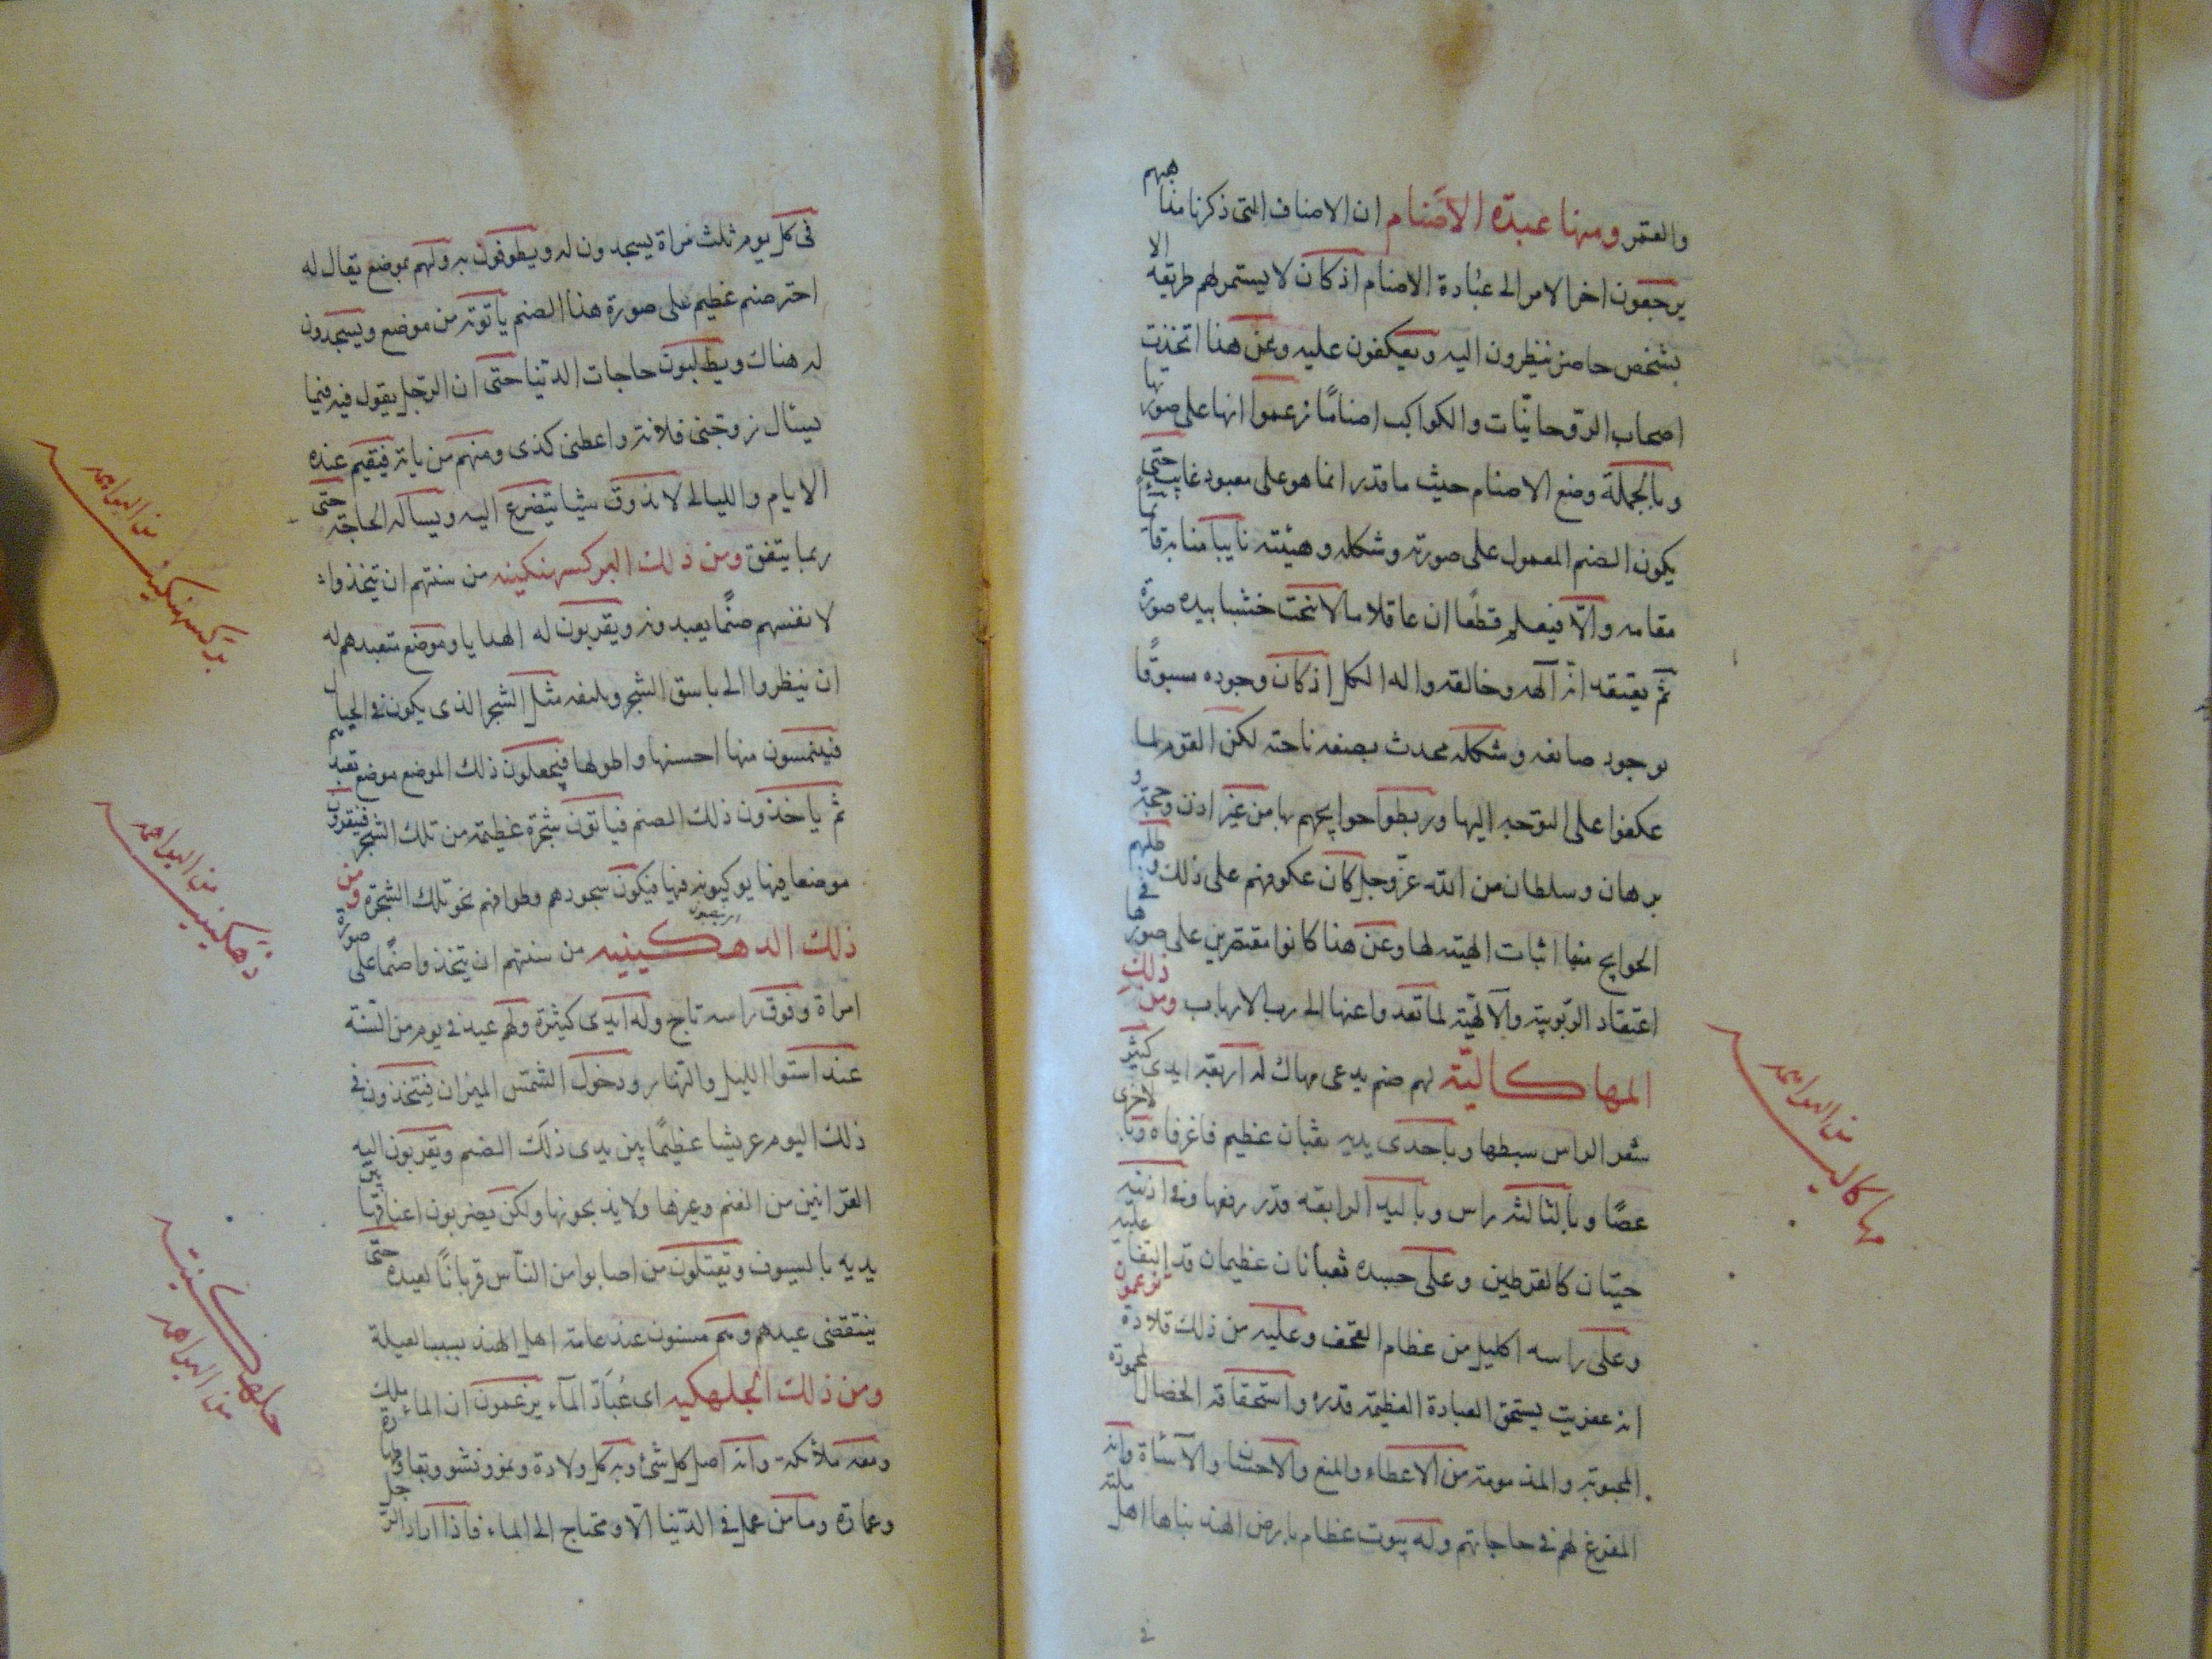 والقمر ومنها عبدة الأصنام ان الاصناف التى ذكرنا مذاهبهم
يرجعون اخر الامر الى عبادة الاصنام اذ كان لا يستمر لهم طريقه الا
بشخص حاضر ينظرون اليه ويعكفون عليه وعن هذا اتخذت
اصحاب الروحانيّات والكواكب اصنامًا زعموا انها على صورتها
وبالجملة وضع الاصنام حيث ما قدر انما هو على معبود غايب حتى
يكون الصنم المعمول على صورته وشكله وهيئته نايبا منابه قائمًا
مقامه والّا فيعلم قطعًا ان عاقلا ما لا ينحت خشبا بيده صورة
ثم يعتقد انّه آلهه وخالقه واله الكل اذ كان وجوده مسبوقًا
بوجود صانعه وشكله محدث بصنعه ناحته لكن القوم لما
عكفوا على التوجه اليها وربطوا حوايجهم بها من غير اذن وحجة و
برهان وسلطان من الله عزّ وجل كان عكوفهم على ذلك وطلبهم
الحوايج منها اثبات الهيته لها وعن هذا كانوا مقتصرين على صورها فى
اعتقاد الربوبيّة والآلهيّة لما تعدوا عنها الى رب الارباب ومن ذلك
المهاكاليّة لهم صنم يدعى مهاك له اربعة ايدى كثير
شعر الراس سبطها وباحدى يديه ثعبان عظيم فاغر فاه وبالاخرى
عصًا وبالثالثه راس وباليد الرابعه قدر رفعها وفى اذنيه
حيّتان كالقرطين وعلى جسده ثعبانان عظيمان قد التفا عليه
وعلى راسه اكليل من عظام القحف وعليه من ذلك قلادة يزعمون
انه عفريت يستحق العبادة العظيمة قدره واستحقاقه الخصال المحمودة
المحبوبة والمذمومة من الاعطاء والمنع والاحسان والآسئاة وانه
المفزع لهم فى حاجاتهم وله بيوت عظام بارض الهند بناها اهل ملته
مهاكاليه
من البراهمه
فى كل يوم ثلث مراة يسجدون له ويطوفون به ولهم بموضع يقال له
اختر صنم عظيم على صورة هذا الصنم ياتوته من موضع ويسجدون
له هناك ويطلبون حاجات الدنيا حتى ان الرّجل يقول فيه فيما
يسئال زوجنى فلانة واعطنى كذى ومنهم من ياته فيقيم عنده
الايام والليالى لا يذوق شيئا يتضرع اليه ويساله الحاجة حتى
ربما يتفق ومن ذلك البركسهنكينه من سنتهم ان يتخذوا
لانفسهم صنمًا يعبدونه ويقربون له الهدايا وموضع متعبدهم له
ان ينظروا الى باسق الشجر وملتفه مثل الشجر الذى يكون فى الجبال
فيلتمسون منها احسنها واطولها فيجعلون ذلك الموضع موضع تعبدهم
ثم ياخذون ذلك الصنم فياتون شجرة عظيمة من تلك الشجر فينقرون
موضعا فيها يوكبونه فيها فيكون سجودهم وطوافهم نحو تلك الشجرة ومن
ذلك الدهكينيه من سنتهم ان يتخذوا صنمًا على صورة
امراة وفوق راسه تاج وله ايدى كثيرة ولهم عيد فى يوم من السّنة
عند استوا الليل والنهار ودخول الشمس الميزان فيتخذون فى
ذلك اليوم عريشا عظيمًا بين يدى ذلك الصنم ويقربون اليه
القرانين من الغنم وغيرها ولا يذبحونها ولكن يضربون اعناقها بين
يديه بالسيوف ويقتلون من اصابوا من النّاس قربانًا لعيده حتى
ينقضى عيدهم وهم مسنون عند عامة اهل الهند بسبب الغيلة
ومن ذلك الجلهكيه اى عُبّاد المآء يزعمون ان الماء ملك
ومعه ملائكة وانه اصل كل شئ وبه كل ولادة ونمو ونشو وبقا وطهارة
وعمارة وما من عمل فى الدّنيا الّا ومحتاج الى الماء فاذا اراد الرّجل
من البراهمه
بركسهنكينيه
من البراهمه
دهكينيه
جلهكينيه
من البراهمه